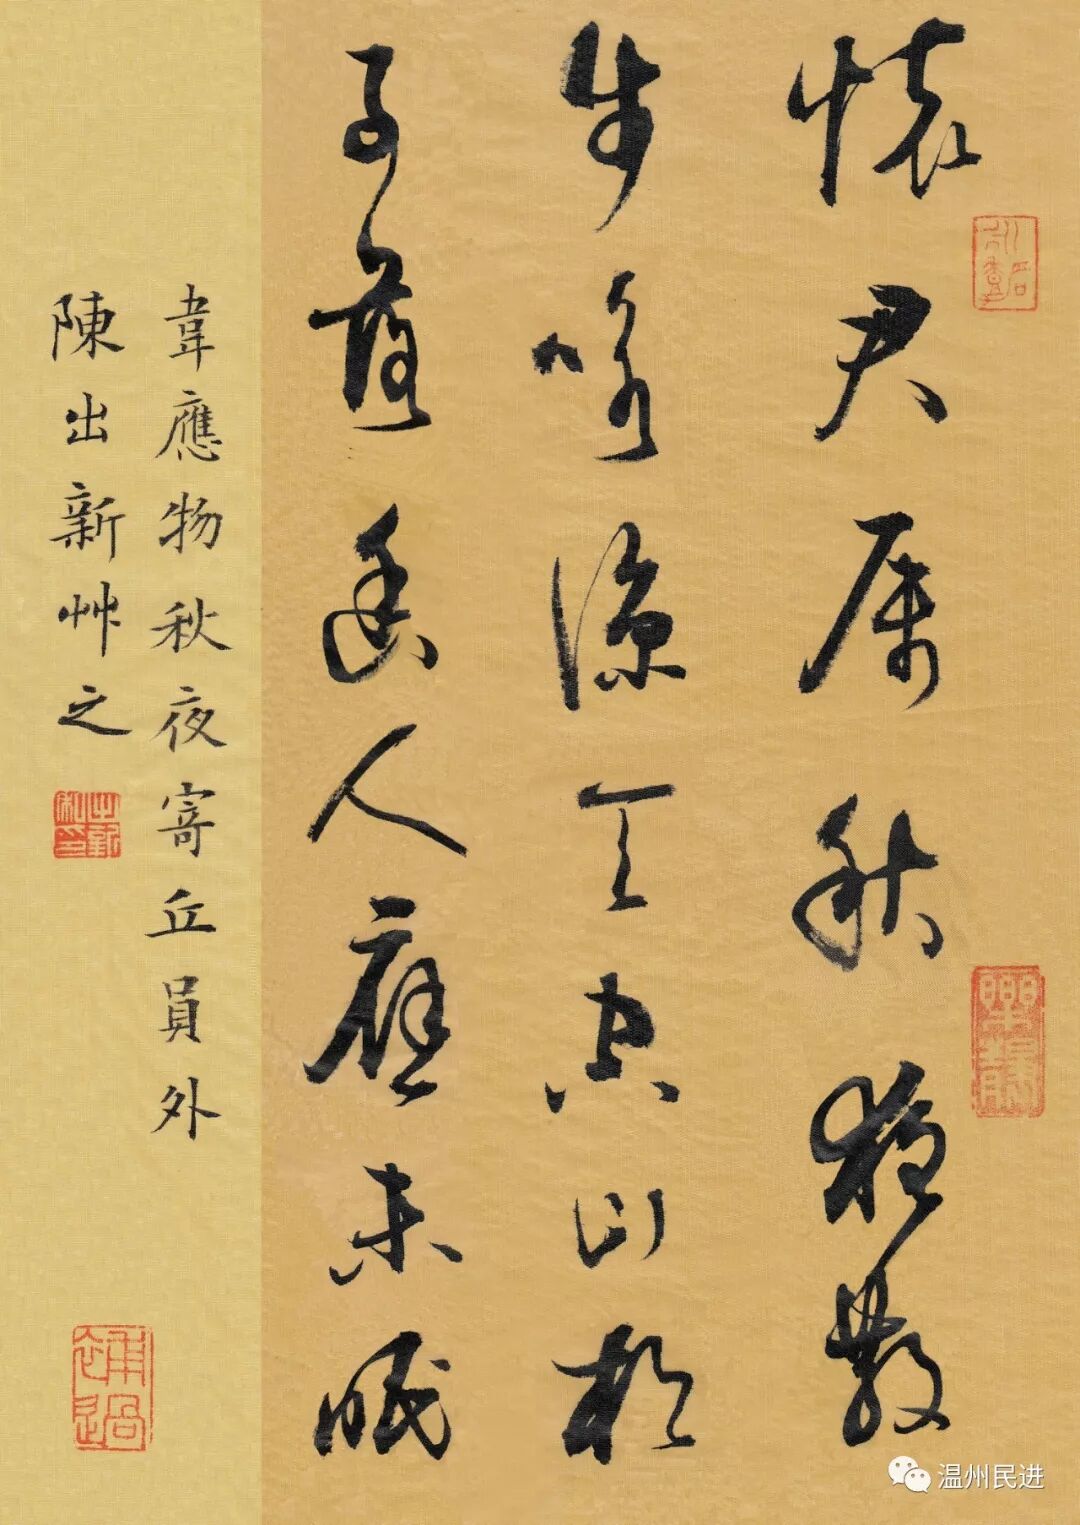 懷君屬秋夜散
步詠涼天空山松
子落幽人應未眠
韋應物秋夜寄丘員外
陳出新艸之
補過
温州民进